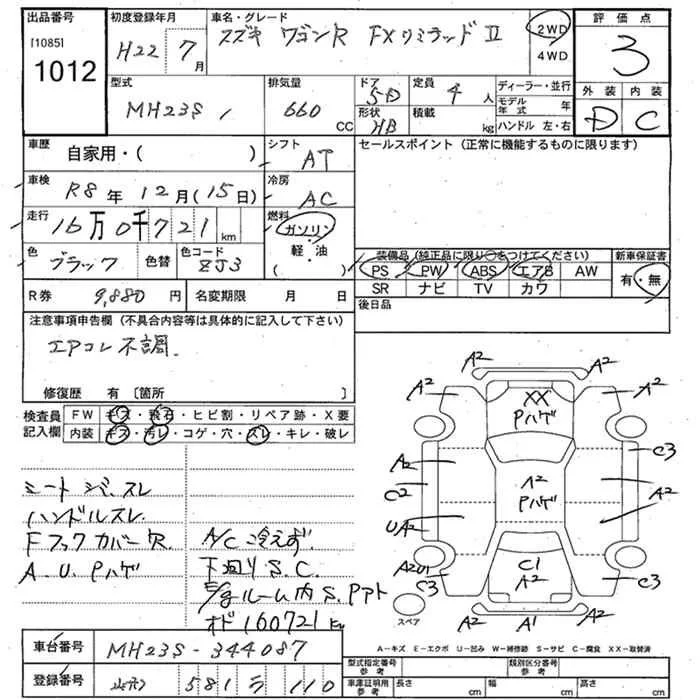 出品番号
[1085]
1012
初度登録年月
H22 7月
車名・グレード
スズキ ワゴンR FXリミテッドⅡ
2WD
4WD
評価点
3
型式
MH23S
排気量
660 CC
ドア
5D
形状
HB
定員
4人
積載
kg
ディーラー・並行
モデル年式 年
ハンドル 左・右
外装 内装
D C
車歴
自家用・( )
シフト
AT
セールスポイント(正常に機能するものに限ります)
車検
R8年12月(15日)
冷房
AC
走行
16万0千721km
燃料
ガソリン・
軽・油
( )
色
ブラック
色替
色コード
ZJ3
装備品(純正品に限り○をつけてください)
新車保証書
PS PW ABS エアB AW
有・無
SR ナビ TV カワ
R券 9,880円
名変期限 月 日
後日品
注意事項申告欄(不具合内容等は具体的に記入して下さい)
エアコン不調
修復歴 有〔箇所 〕
検査員
記入欄
FW キズ・飛石・ヒビ割・リペア跡・X要
内装 キズ・汚レ・コゲ・穴・スレ・キレ・破レ
A2 A2
A2 XX A2
Pハゲ
A2 C3
C2 A2 A2
Pハゲ
UA2
A2U1 C1 C3
A2 C3
A2 A1 A2
スペア
ハンドルスレ
A.U.Pハゲ
A/C冷えず
下回りS.C.
オド160721km
A-キズ E-エクボ U-凹み W-補修跡 S-サビ C-腐食 XX-取替済
車台番号
MH23S-344087
登録番号
581 ラ 110
型式指定番号
参考
類別区分番号
参考
車庫証明用
参考
長さ cm
幅 cm
高さ cm